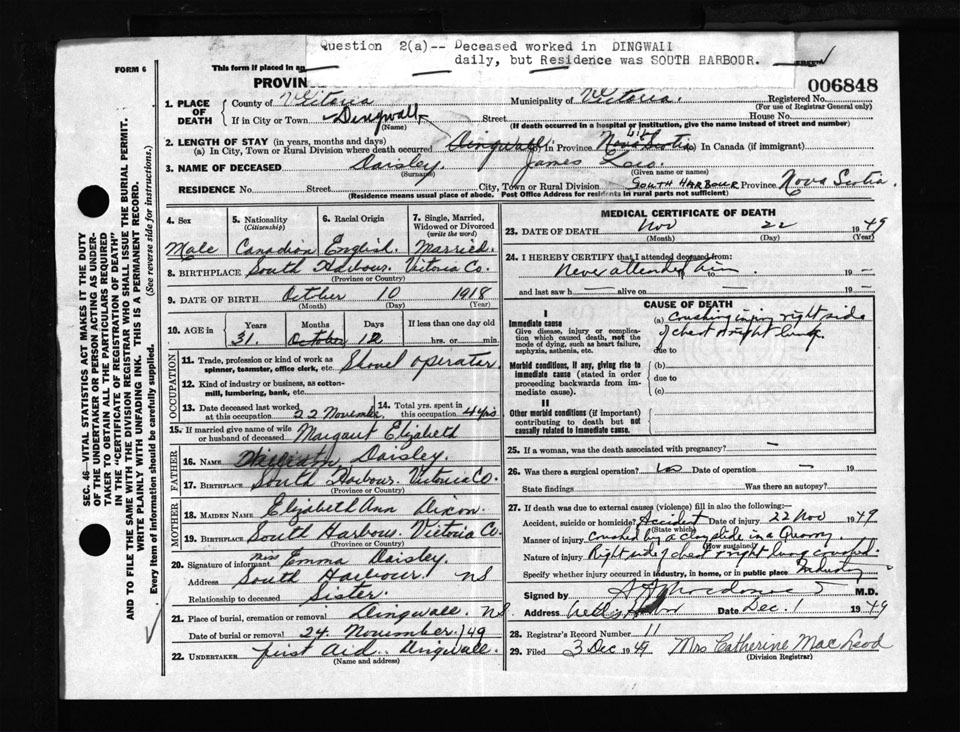 Question 2(a)-- Deceased worked in DINGWALL
daily, but Residence was SOUTH HARBOUR.
FORM 6
This form if placed in an
PROVIN
006848
1. PLACE OF DEATH County of Victoria Municipality of Victoria. Registered No.
(For use of Registrar General only)
If in City or Town Dingwall Street House No.
(Name) (If death occurred in a hospital or institution, give the name instead of street and number)
2. LENGTH OF STAY (in years, months and days)
(a) In City, Town or Rural Division where death occurred Dingwall (b) In Province Nova Scotia (c) In Canada (if immigrant)
3. NAME OF DECEASED Daisley. James Leo.
(Surname) (Given name or names)
RESIDENCE No. Street City, Town or Rural Division SOUTH HARBOUR Province Nova Scotia
(Residence means usual place of abode. Post Office Address for residents in rural parts not sufficient)
4. Sex Male
5. Nationality (Citizenship) Canadian
6. Racial Origin English.
7. Single, Married, Widowed or Divorced (write the word) Married.
8. BIRTHPLACE South Harbour. Victoria Co.
(Province or Country)
9. DATE OF BIRTH October 10 1918
(Month) (Day) (Year)
10. AGE in Years 31. Months October Days 12 If less than one day old
hrs. or min.
OCCUPATION
11. Trade, profession or kind of work as spinner, teamster, office clerk, etc. Shovel operator
12. Kind of industry or business, as cotton-mill, lumbering, bank, etc.
13. Date deceased last worked at this occupation 22 November
14. Total yrs. spent in this occupation 4 yrs
15. If married give name of wife or husband of deceased Margaret Elizabeth
FATHER
16. NAME William Daisley.
17. BIRTHPLACE South Harbour. Victoria Co.
(Province or Country)
MOTHER
18. MAIDEN NAME Elizabeth Ann Dixon
19. BIRTHPLACE South Harbour, Victoria Co.
(Province or Country)
20. Signature of informant Miss Emma Daisley.
Address South Harbour NS
Relationship to deceased Sister.
21. Place of burial, cremation or removal Dingwall. NS
Date of burial or removal 24. November. 1949
22. UNDERTAKER first Aid.. Dingwall.
(Name and address)
MEDICAL CERTIFICATE OF DEATH
23. DATE OF DEATH Nov 22 1949
(Month) (Day) (Year)
24. I HEREBY CERTIFY that I attended deceased from:
Never attended him. 19 –
and last saw h – alive on – 19 –
CAUSE OF DEATH
I
Immediate cause (a) Crushing injury right side of chest & right lung.
Give disease, injury or complication which caused death, not the mode of dying, such as heart failure, asphyxia, asthenia, etc.
due to
Morbid conditions, if any, giving rise to immediate cause (stated in order proceeding backwards from immediate cause).
(b)
due to
(c)
II
Other morbid conditions (if important) contributing to death but not causally related to immediate cause.
25. If a woman, was the death associated with pregnancy? –
26. Was there a surgical operation? no Date of operation – 19
State findings Was there an autopsy?
27. If death was due to external causes (violence) fill in also the following:—
Accident, suicide or homicide? Accident Date of injury 22 Nov 1949
(State which)
Manner of injury Crushed by a clay slide in a Quarry.
(How sustained)
Nature of injury Right side of chest & right lung crushed.
Specify whether injury occurred in industry, in home, or in public place Industry
Signed by M.D.
Address Date Dec. 1 1949
28. Registrar's Record Number 11
29. Filed 3 Dec 1949 Mrs Catherine MacLeod
(Division Registrar)
SEC. 46—VITAL STATISTICS ACT MAKES IT THE DUTY
OF THE UNDERTAKER OR PERSON ACTING AS UNDER-
TAKER TO OBTAIN ALL THE PARTICULARS REQUIRED
IN THE "CERTIFICATE OF REGISTRATION OF DEATH"
AND TO FILE THE SAME WITH THE DIVISION REGISTRAR WHO SHALL ISSUE THE BURIAL PERMIT.
WRITE PLAINLY WITH UNFADING INK. THIS IS A PERMANENT RECORD.
Every item of Information should be carefully supplied. (See reverse side for instructions.)